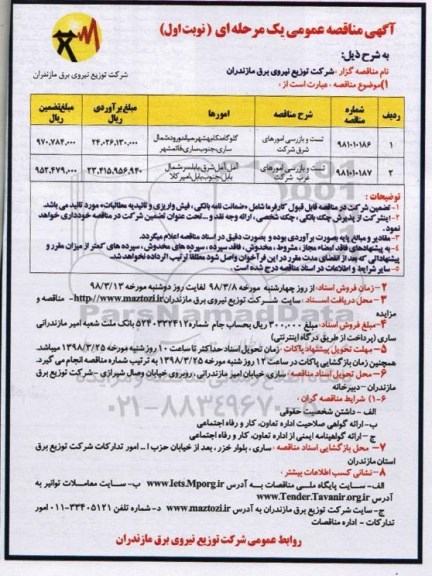 آگهی مناقصه عمومی یک مرحله ای ( نوبت اول )
شرکت توزیع نیروی برق مازندران
به شرح ذیل:
نام مناقصه گزار :شرکت توزیع نیروی برق مازندران
۱)موضوع مناقصه ، عبارت است از ،
ردیف شماره مناقصه شرح مناقصه امورها مبلغ برآوردی ریال مبلغ تضمین ریال
۱ ۹۸۱۰۱۰۱۸۶ تست و بازرسی امورهای شرق شرکت گلوگاه،نکا،بهشهر،میاندورود،شمال ساری،جنوب ساری،قائمشهر ۲۴،۰۲۶،۱۳۰،۰۰۰ ۹۷۰،۷۸۴،۰۰۰
۲ ۹۸۱۰۱۰۱۸۷ تست و بازرسی امورهای غرب شرکت آمل،آمل شرق،بابلسر،شمال بابل،جنوب بابل،امیرکلا ۲۳،۴۱۵،۹۵۶،۹۴۰ ۹۵۲،۴۷۹،۰۰۰
توضیحات :
۱- تضمین شرکت در مناقصه قابل قبول کارفرما شامل «ضمانت نامه بانکی ، فیش واریزی و تائیدیه مطالبات» مورد تائید می باشد.
۲- اینشرکت از پذیرش چک بانکی ، چک شخصی ، ارائه وجه نقد و ...تحت عنوان تضمین شرکت در مناقصه خودداری خواهد
نمود.
۳- مقادیر و مبالغ پایه بصورت برآوردی بوده و بصورت دقیق در اسناد مناقصه اعلام میگردد.
۴- به پیشنهادهای فاقد امضاء مجاز ، مشروط ، مخدوش ، فاقد سپرده ، سپرده های مخدوش ، سپرده های کمتر از میزان مقرر و
پیشنهاداتی که بعد از انقضای مدت مقرر در این فراخوان واصل شود مطلقا ترتیب اثر داده نخواهد شد.
۵- سایر شرایط و اطلاعات در اسناد مناقصه درج شده است .
۲- زمان فروش اسناد: از روز چهارشنبه مورخه ۹۸/۳/۸ لغایت روز دوشنبه مورخه ۹۸/۳/۱۳
۳- محل دریافت اسناد : سایت شرکت توزیع نیروی برق مازندران http://www.maztozi.ir- مناقصه و
مزایده
۴-مبلغ فروش اسناد: مبلغ ۳۰۰،۰۰۰ ریال بحساب جام شماره ۵۲۴۰۳۳۲۴۱۲ بانک ملت شعبه امیر مازندرانی
ساری (پرداخت از طریق درگاه اینترنتی)
۵- مهلت تحویل پیشنهاد پاکات : زمان تحویل اسناد حداکثر تا ساعت ۱۰ روز شنبه مورخه ۱۳۹۸/۳/۲۵ میباشد.
همچنین زمان بازگشایی پاکات در ساعت ۱۲ روز شنبه مورخه ۱۳۹۸/۳/۲۵ به ترتیب شماره مناقصه انجام می گیرد.
۶- محل تحویل اسناد مناقصه : ساری، خیابان امیر مازندرانی ، روبروی خیابان وصال شیرازی –شرکت توزیع برق
مازندران –دبیرخانه
۶-۱) شرایط مناقصه گران :
الف - داشتن شخصیت حقوقی
ب-ارائه گواهی صلاحیت اداره تعاون، کار و رفاه اجتماعی
ج - ارائه گواهینامه ایمنی از اداره تعاون، کار و رفاه اجتماعی
۷- محل بازگشایی اسناد مناقصه : ساری ، بلوار خزر ، بعد از خیابان حزب ا... امور تدارکات شرکت توزیع برق
استان مازندران
۸-نشانی کسب اطلاعات بیشتر :
الف- سایت پایگاه ملی مناقصات به آدرس www.Iets.Mporg.ir ب- سایت معاملات توانیر به
آدرس www.Tender.Tavanir.org.ir
ج- سایت شرکت توزیع برق مازندران به آدرس www.maztozi.ir د- شماره تلفن ۳۳۴۰۵۱۲۱-۰۱۱ امور
تدارکات - اداره مناقصات
روابط عمومی شرکت توزیع نیروی برق مازندران
ParsNamadData
۰۲۱-۸۸۳۴۹۶۷۰